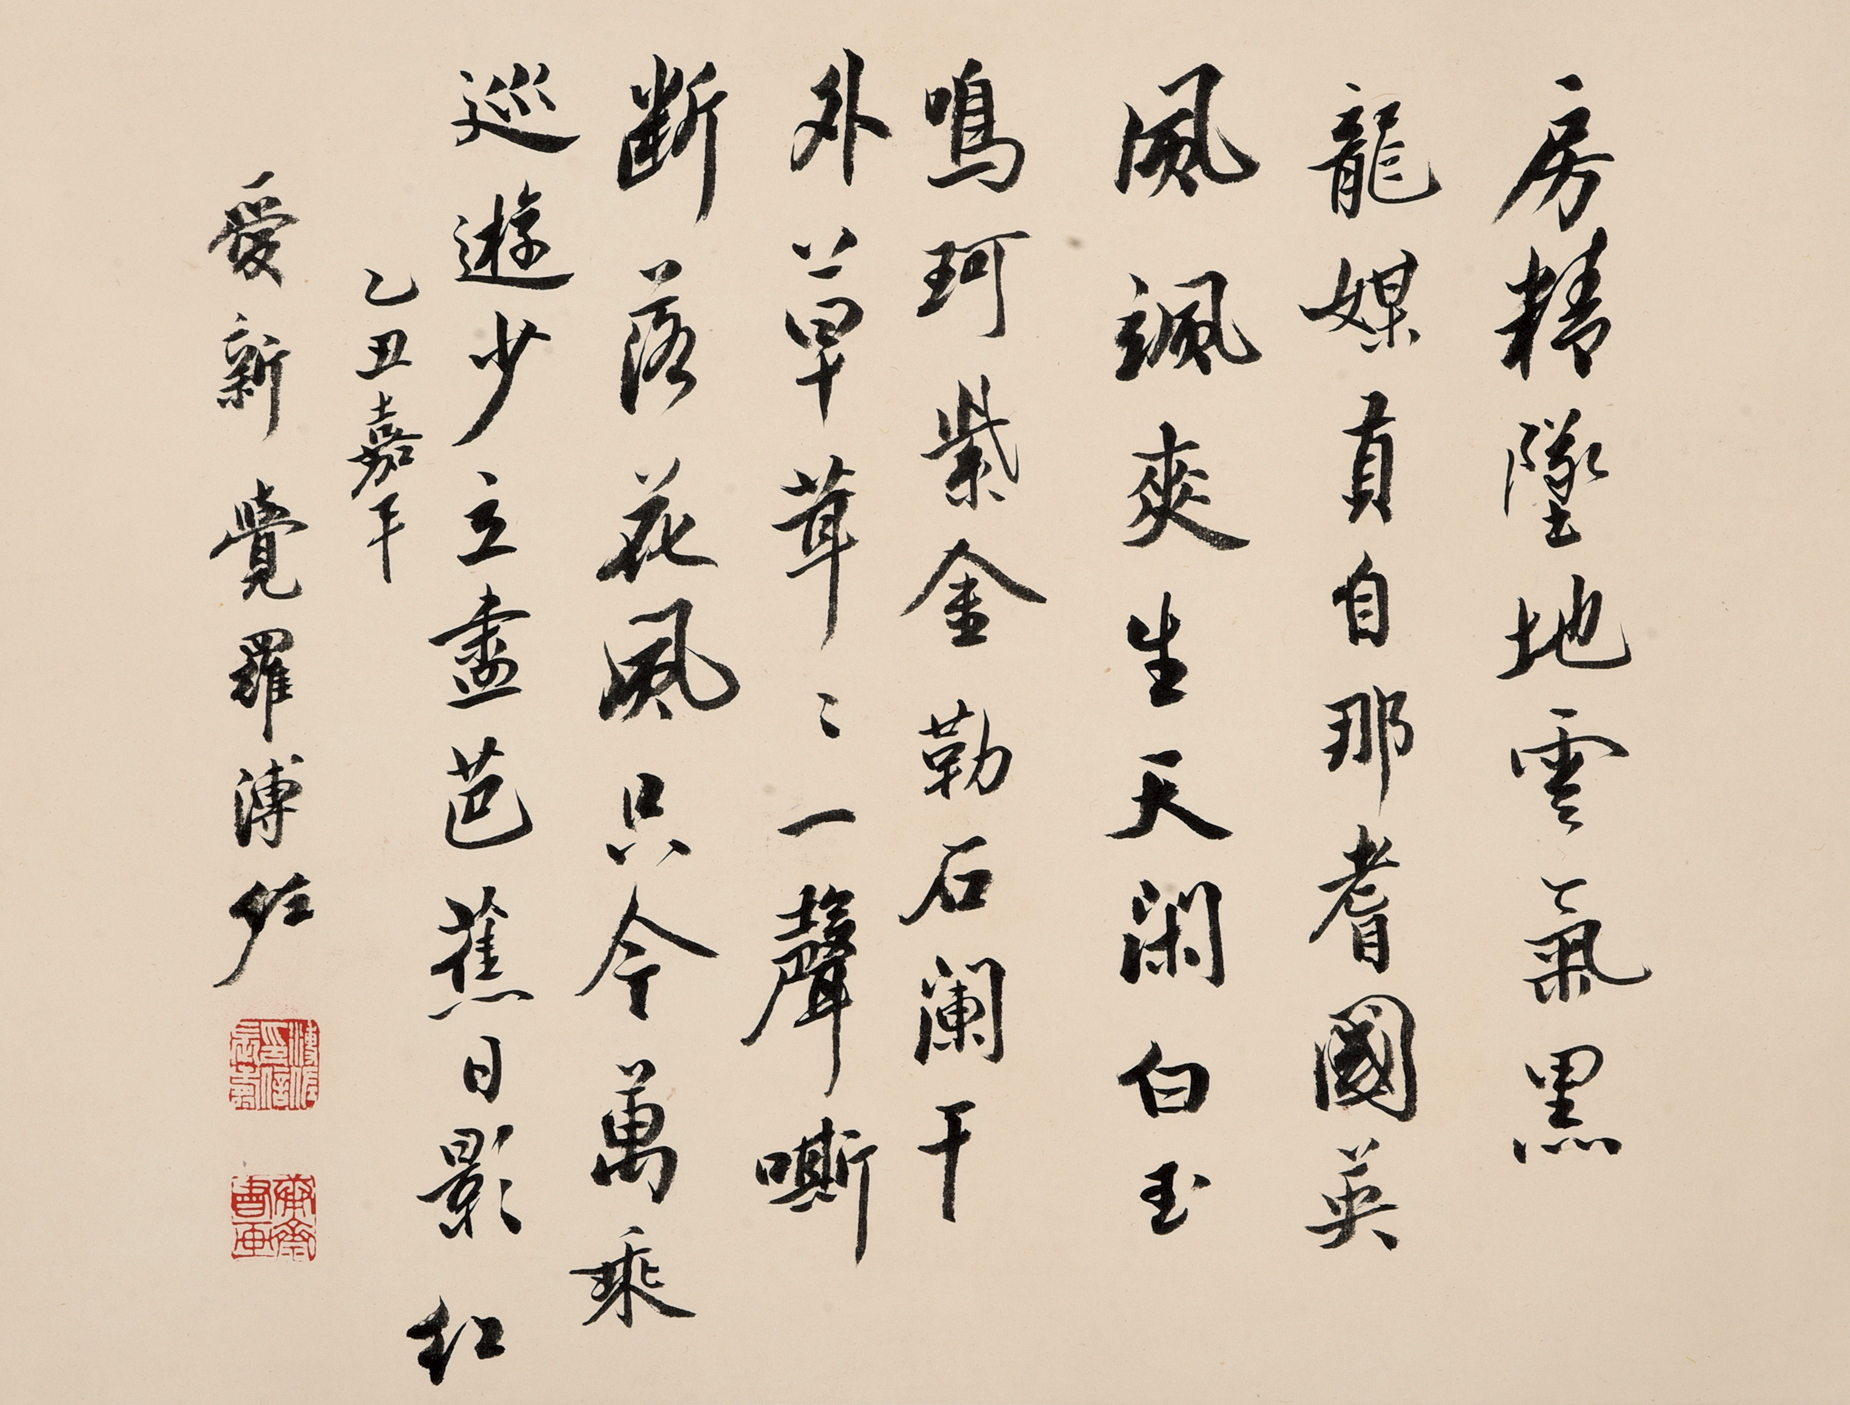 房精墜地雲氣黑
龍媒貢自那耆國英
風颯爽生天閑白玉
鳴珂紫金勒石闌干
外草茸〻一聲嘶
斷落花風只今萬乘
巡遊少立盡芭蕉日影紅
乙丑嘉平
愛新覺羅溥佐